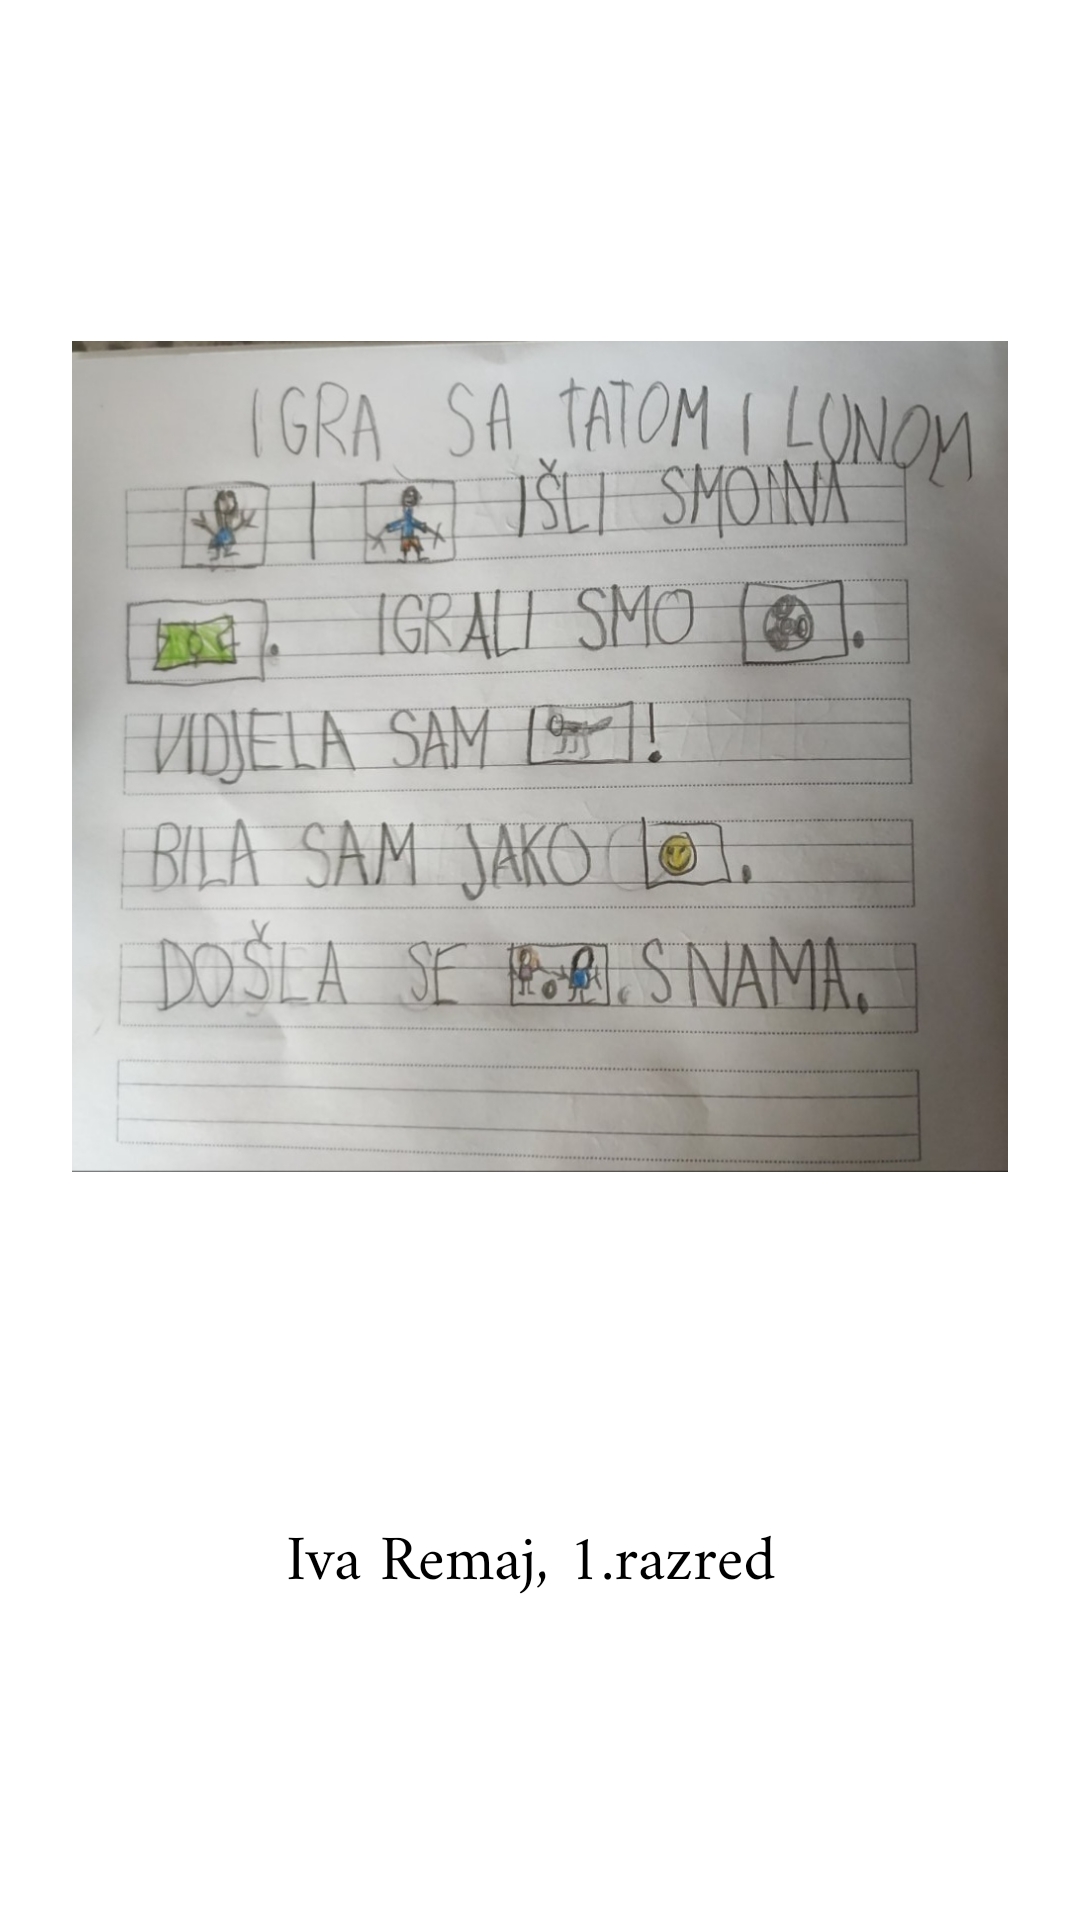 IGRA SA TATOM I LUNOM
I IŠLI SMO NA
. IGRALI SMO .
VIDJELA SAM !
BILA SAM JAKO .
DOŠLA SE . S NAMA.
Iva Remaj, 1.razred